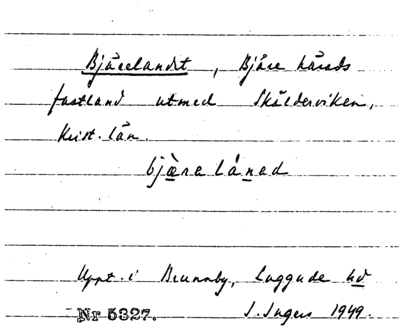 Bjärelandet, Bjäre härads
fastland utmed Skälderviken,
Krist. län.
bjæ̀ra lánad
Uppt. i Brunnby, Luggude hd
Nr 5327. I. Ingers 1949.